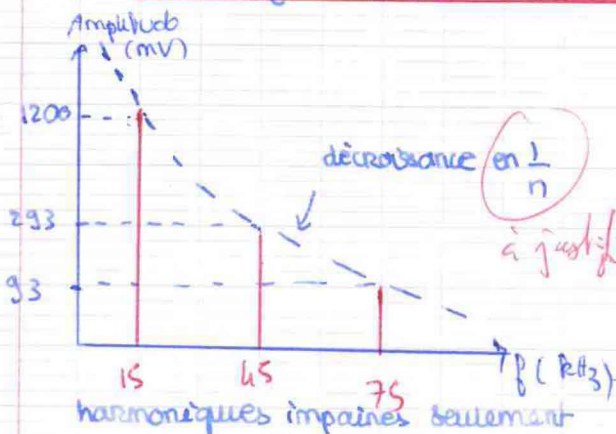 Amplitude
(mV)
1200
décroissance en 1/n
293
à justif
93
15 45 75 f (kHz)
harmoniques impaires seulement